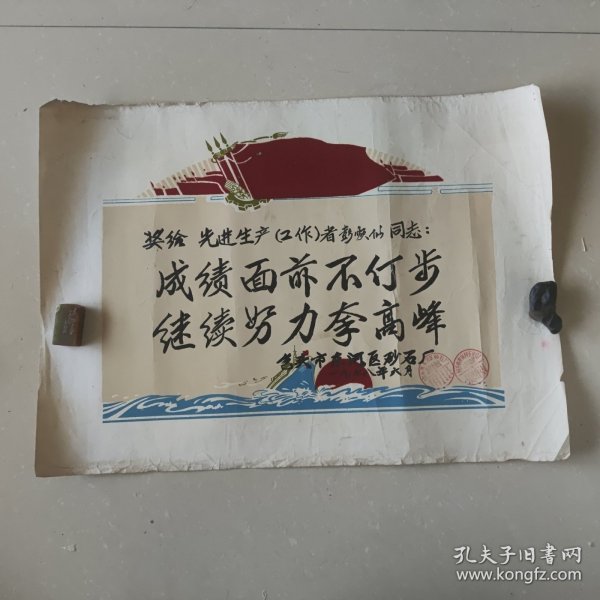 奖给 先进生产(工作)者彭 同志:
成绩面前不停步
继续努力攀高峰
包头市东河区砂石厂
一九 八年六月
孔夫子旧书网
www.kongfz.com